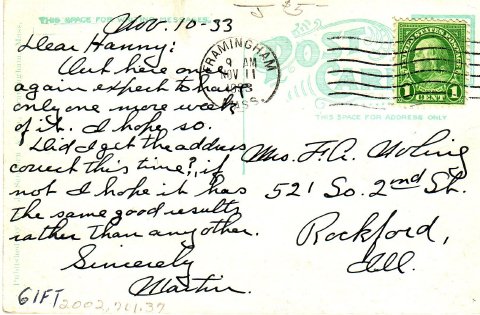 Nov. 10-33
J $5
THIS SPACE FOR
Dear Hanny:
Out here once
again expect to have
only one more week
of it. I hope so.
Did I get the address
correct this time?, if
not I hope it has
the same good results
rather than any other.
Sincerely
Martin.
FRAMINGHAM
9 AM
NOV 11
MASS.
POST
CARD
THIS SPACE FOR ADDRESS ONLY
1 CENT 1
Mrs. F. A.
521 So. 2nd St.
Rockford,
Ill.
GIFT 2002.761.37